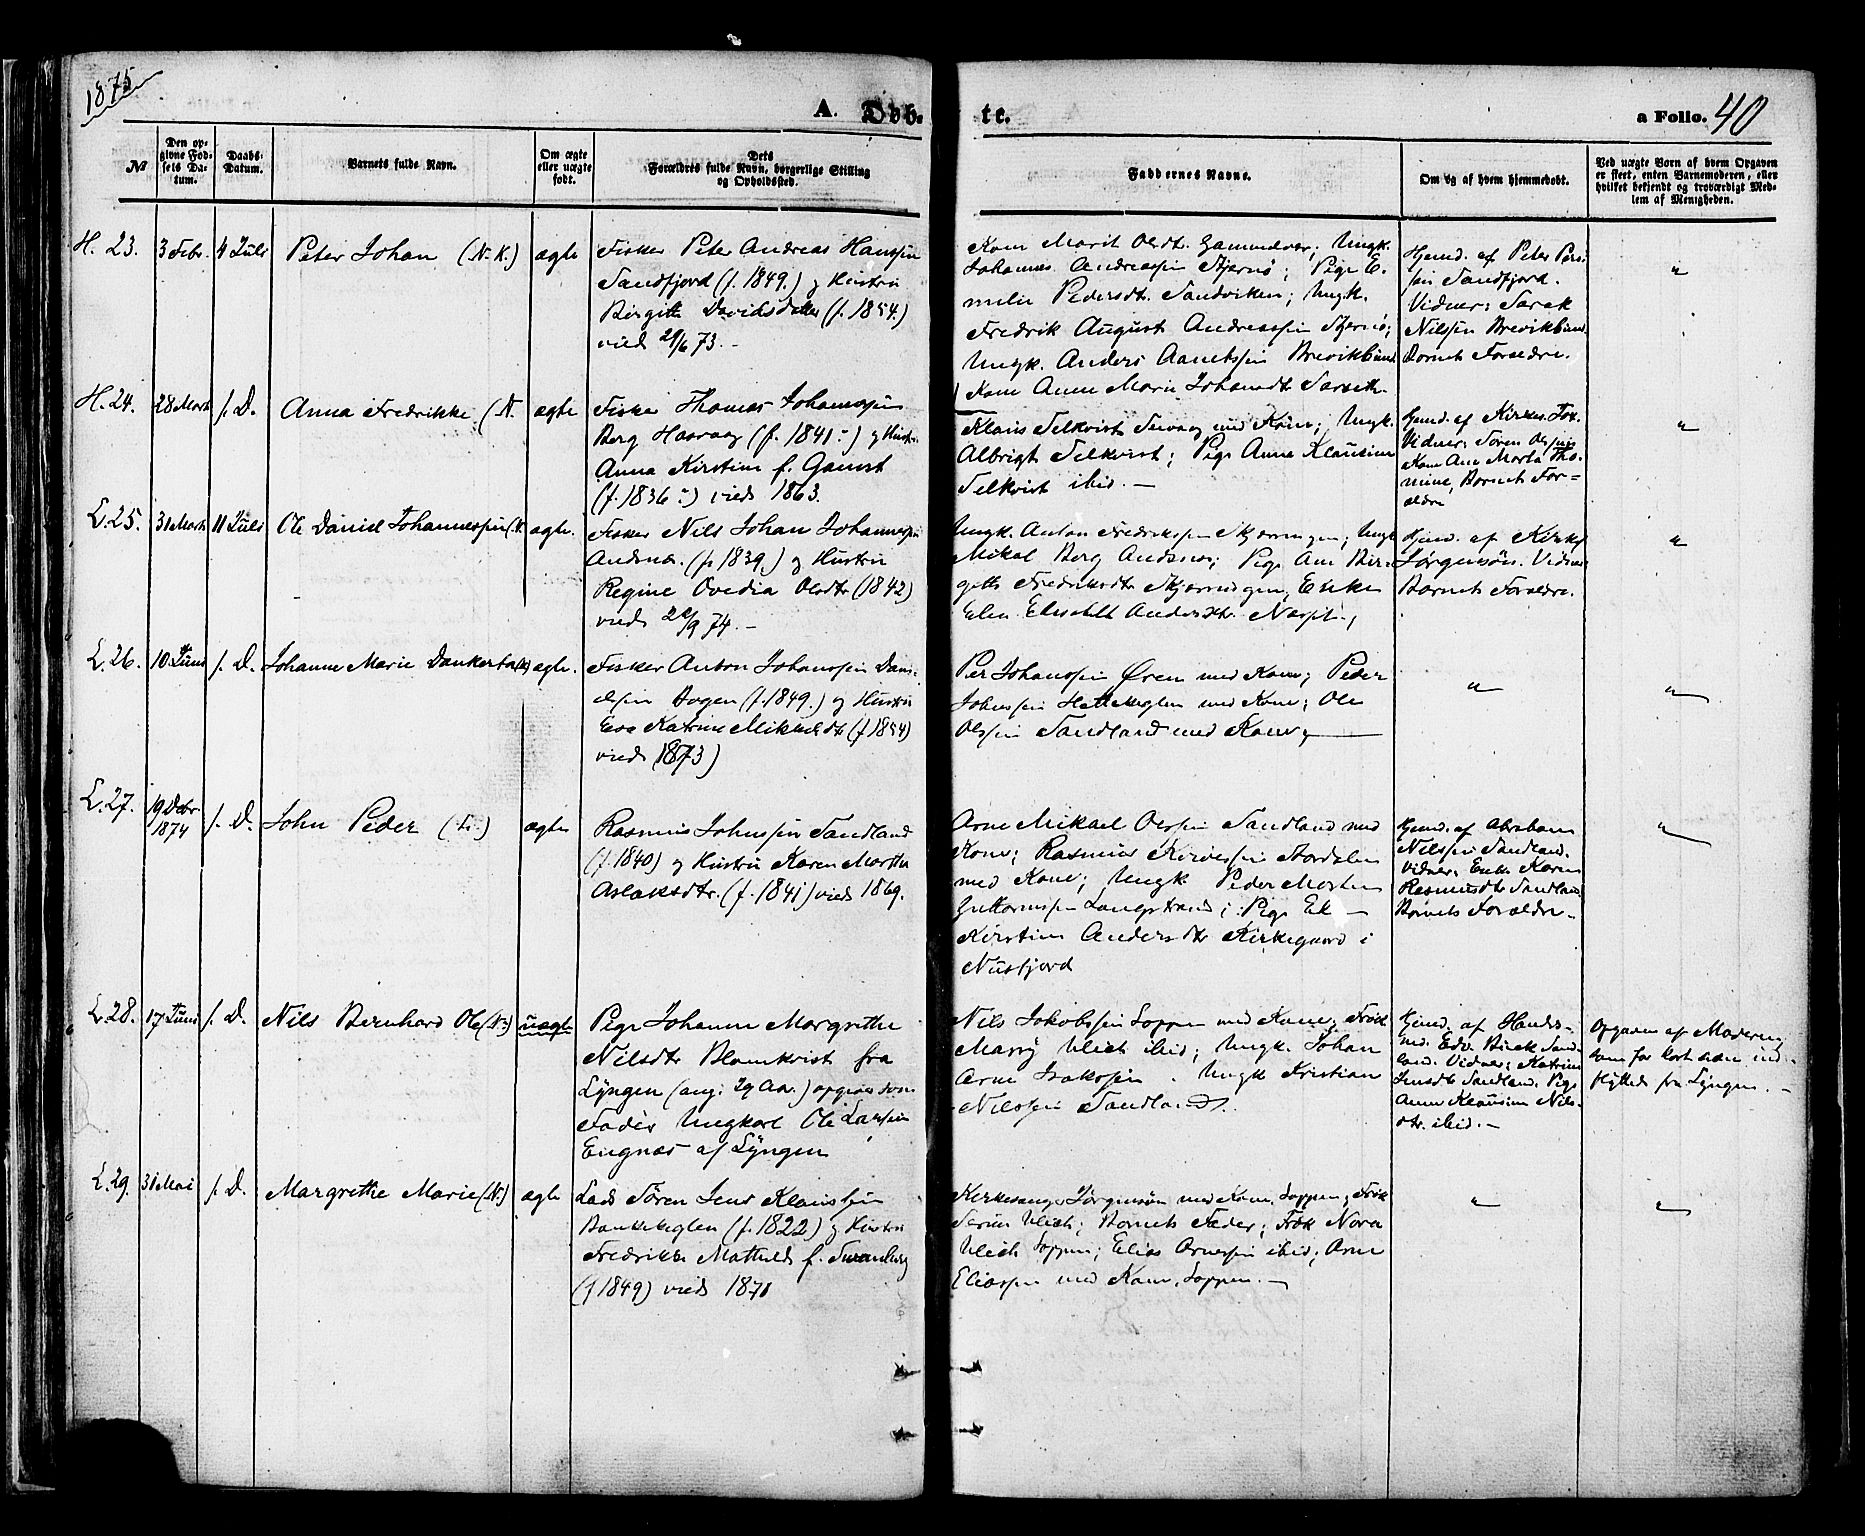 1875
A. Døb-
te.
a Folio. 40
№
Den op-
givne Fød-
sels Da-
tum.
Daabs-
Datum.
Barnets fulde Navn.
Om ægte
eller uægte
født.
Dets
Forældres fulde Navn, borgerlige Stilling
og Opholdssted.
Faddernes Navne.
Om og af hvem hjemmedøbt.
Ved uægte Børn af hvem Opgaven
er skeet, enten Barnemoderen, eller
hvilket bekjendt og troværdigt Med-
lem af Menigheden.
H. 23. 3 Febr. 4 Juli Peter Johan (N. K.) ægte
Fisker Peter Andreas Hanssen
Sandfjord (f. 1849.) og Hustru
Birgitte Davidsdatter (f. 1854.)
viede 29/6 73. -
Kone Marit Olsdt. Gammelvær; Ungk.
Johannes Andreassen Stjernø; Pige E-
melie Pedersdt. Sandviken; Ungk.
Fredrik August Andreassen Stjernø;
Ungk. Anders
Hjemd. af Peter
Sandfjord.
Vidner: Sarak
Nilssen
Barnets Forældre.
"
H. 24. 28 Marts s. D. Anna Fredrikke (N. ægte
Fisker Thomas Johannessen
Berg Haavaag (f. 1841 -) og Hustru
Anna Kirstine f. Gamst
(f. 1836 -) viede 1863.
Kone Anne Marie Johannesdt.
med Kone; Ungk.
Albrigt ; Pige Anna Klausine
ibid. -
Hjemd. af Kirkes.
Vidner: Søren Olssen
Kone Ane Marta Tho-
mine, Barnets For-
ældre
"
L. 25. 31 Marts 11 Juli Ole Daniel Johannessen (N. ægte.
Fisker Nils Johan Johannessen
Andsnes. (f. 1839.) og Hustru
Regine Ovedia Olsdtr (1842)
viede 20/9 74. -
Ungk. Anton Fredriksen Skjerningen; Ungk
Mikal Berg Andsnes; Pige Ane Bir-
gitte Fredriksdtr Skjerningen; Enke
Elen Elisabeth Andersdtr.
Hjemd. af Kirkes
Jørgensøn. Vidner
Barnets Forældre.
"
L. 26. 10 Juni s. D. Johanne Marie Dankerta (N) ægte.
Fisker Anton Johanssen Dani-
elsen Bogen (f. 1849.) og Hustru
Eva Katrine Mikkelsdtr (f 1854)
viede (1873)
Per Johanssen Øren med Kone; Peder
Johnssen med Kone; Ole
Olssen Sandland med Kone,
"
"
L. 27. 19 Debr.
1874 s. D. John Peder ægte
Rasmus Johnssen Sandland
(f. 1840) og Hustru Karen Marthe
Aslaksdtr. (f. 1841) viede 1869.
Arne Mikael Olssen Sandland med
Kone; Rasmus
med Kone; Ungk Peder Morten
Guttormssen Langstrand; Pige
Kirstine Andersdtr Kirkegaard i
Nusfjord
Hjemd. af Abraham
Nilssen Sandland.
Vidner: Enke Karen
Rasmusdtr Sandland
Barnets Forældre.
"
L. 28. 17 Juni s. D. Nils Bernhard Ole (N.) uægte
Pige Johanne Margrethe
Nilsdtr Blomkvist fra
Lyngen (ang. 29 Aar.) opgiver som
Fader Ungkarl Ole Larssen
Engnæs af Lyngen
Nils Jakobssen Loppen med Kone; Frøk
Marry Ulich ibid; Ungk. Johan
Arne Isakssen. Ungk Kristian
Nilssen Sandland.
Hjemd. af Hands-
md. Edv. Buck Sand-
land. Vidner: Katrine
Jensdtr Sandland. Pige
Anne Klausine Nils-
dtr. ibid. -
Opgaven af Moderen
som for kort siden ind-
flyttede fra Lyngen. -
L. 29. 31 Mai s. D. Margrethe Marie (N.) ægte
Lods Søren Jens Klaussen
(f. 1822) og Hustru
Fredrikke Mathilde f. Svanberg
(f 1849) viede 1871
Kirkesanger Jørgensøn med Kone, Loppen; Frøk
Serine Ulich; Barnets Fader; Frøk Nora
Ulich Loppen; Elias Arnessen ibid; Arne
Eliassen med Kone, Loppen. -
"
"